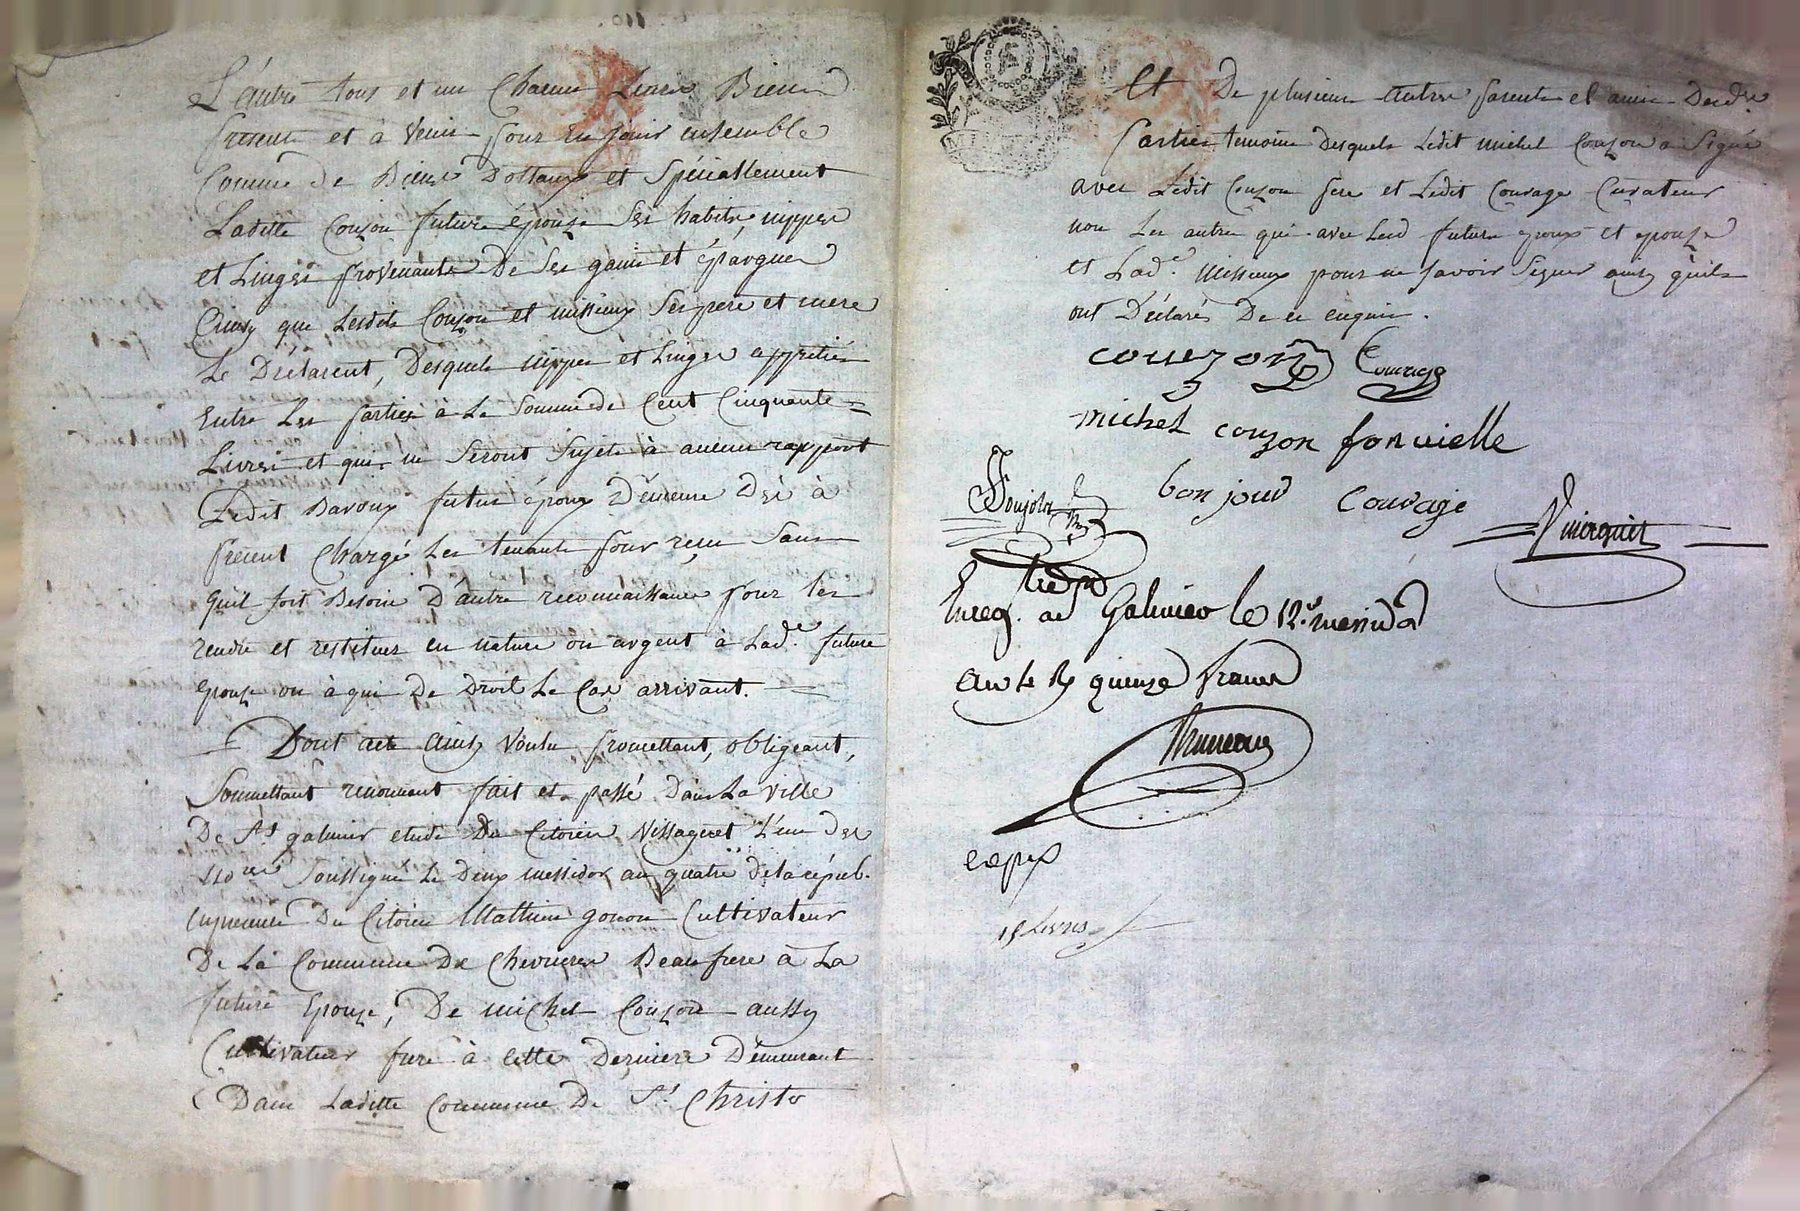 L'autre tous et un Chacun Leurs Biens
presents et à Venir pour En jouir ensemble
Comme de Biens Dottaux et Spéciallement
Laditte Couzon future épouze Ses habits, nippes
et Linges provenants De Ses gains et épargnes
Ainsy que Lesdits Couzon et missieux Ses pere et mere
Le Déclarent, Desquels nippes et Linges appretiés
Entre Les parties à La Somme de Cent Cinquante
Livres et qui ne Seront Sujets à aucun rapport
Ledit Davoux futur époux Demeure Dès à
présent Chargé Les tenants pour reçu Sans
quil soit Besoin D'autre reconnaissance pour les
rendre et restituer en nature ou argent à Lad.e future
Epouze ou à qui De Droit Le Cas arrivant.
Dont acte Ainsy Voulu promettant, obligeant,
Soumettant renonçant fait et passé Dans La Ville
De St galmier etude Du Citoien Vissaguet L'un des
nores Soussigné Le Deux messidor an quatre de la répub.
En presence Du Citoien Mathieu gonon Cultivateur
De La Commune De Chevrieres Beaufrere à La
future Epouze, De michel Couzon aussy
Cultivateur frere à Cette Derniere Demeurant
Dans Laditte Commune De St Christo
Et De plusieurs Autres parents et amis Desdes
Parties temoins Desquels Ledit michel Couzon a Signé
avec Ledit Couzon pere et Ledit Courage Curateur
non Les autres qui avec Lesd futurs epoux et epouze
et Lad.e missieux pour ne savoir Signer ainsy qu'ils
ont Déclarés De ce enquis.
couezon Courage
michel couzon fonvielle
bon jour Courage
Enreg. a Galmier le 12. messidor
an 4 R quinze francs
expd
15 Livres